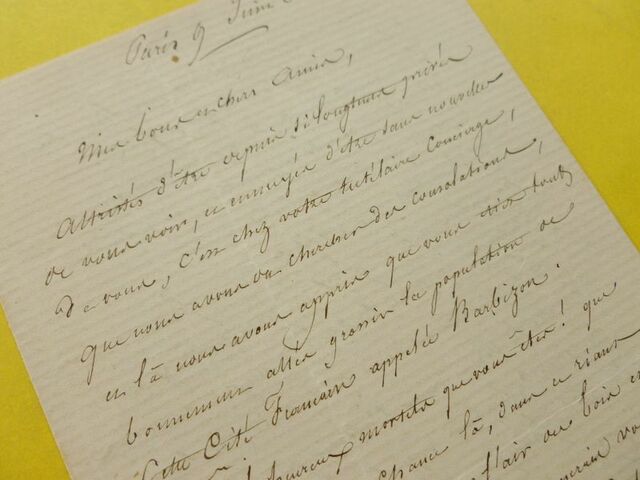 Paris 9 Juin
Mes bons et chers Amis,
Attristés d'être depuis si longtems privés
de vous voir, et ennuyés d'être sans nouvelles
de vous, c'est chez votre tutélaire concierge,
que nous avons été chercher des consolations,
et là nous avons appris que vous étiez tout
bonnement allés grossir la population de
cette Cité Française appelée Barbizon.
heureux mortels que vous êtes! que
France là, dans ce riant
flair du bois et